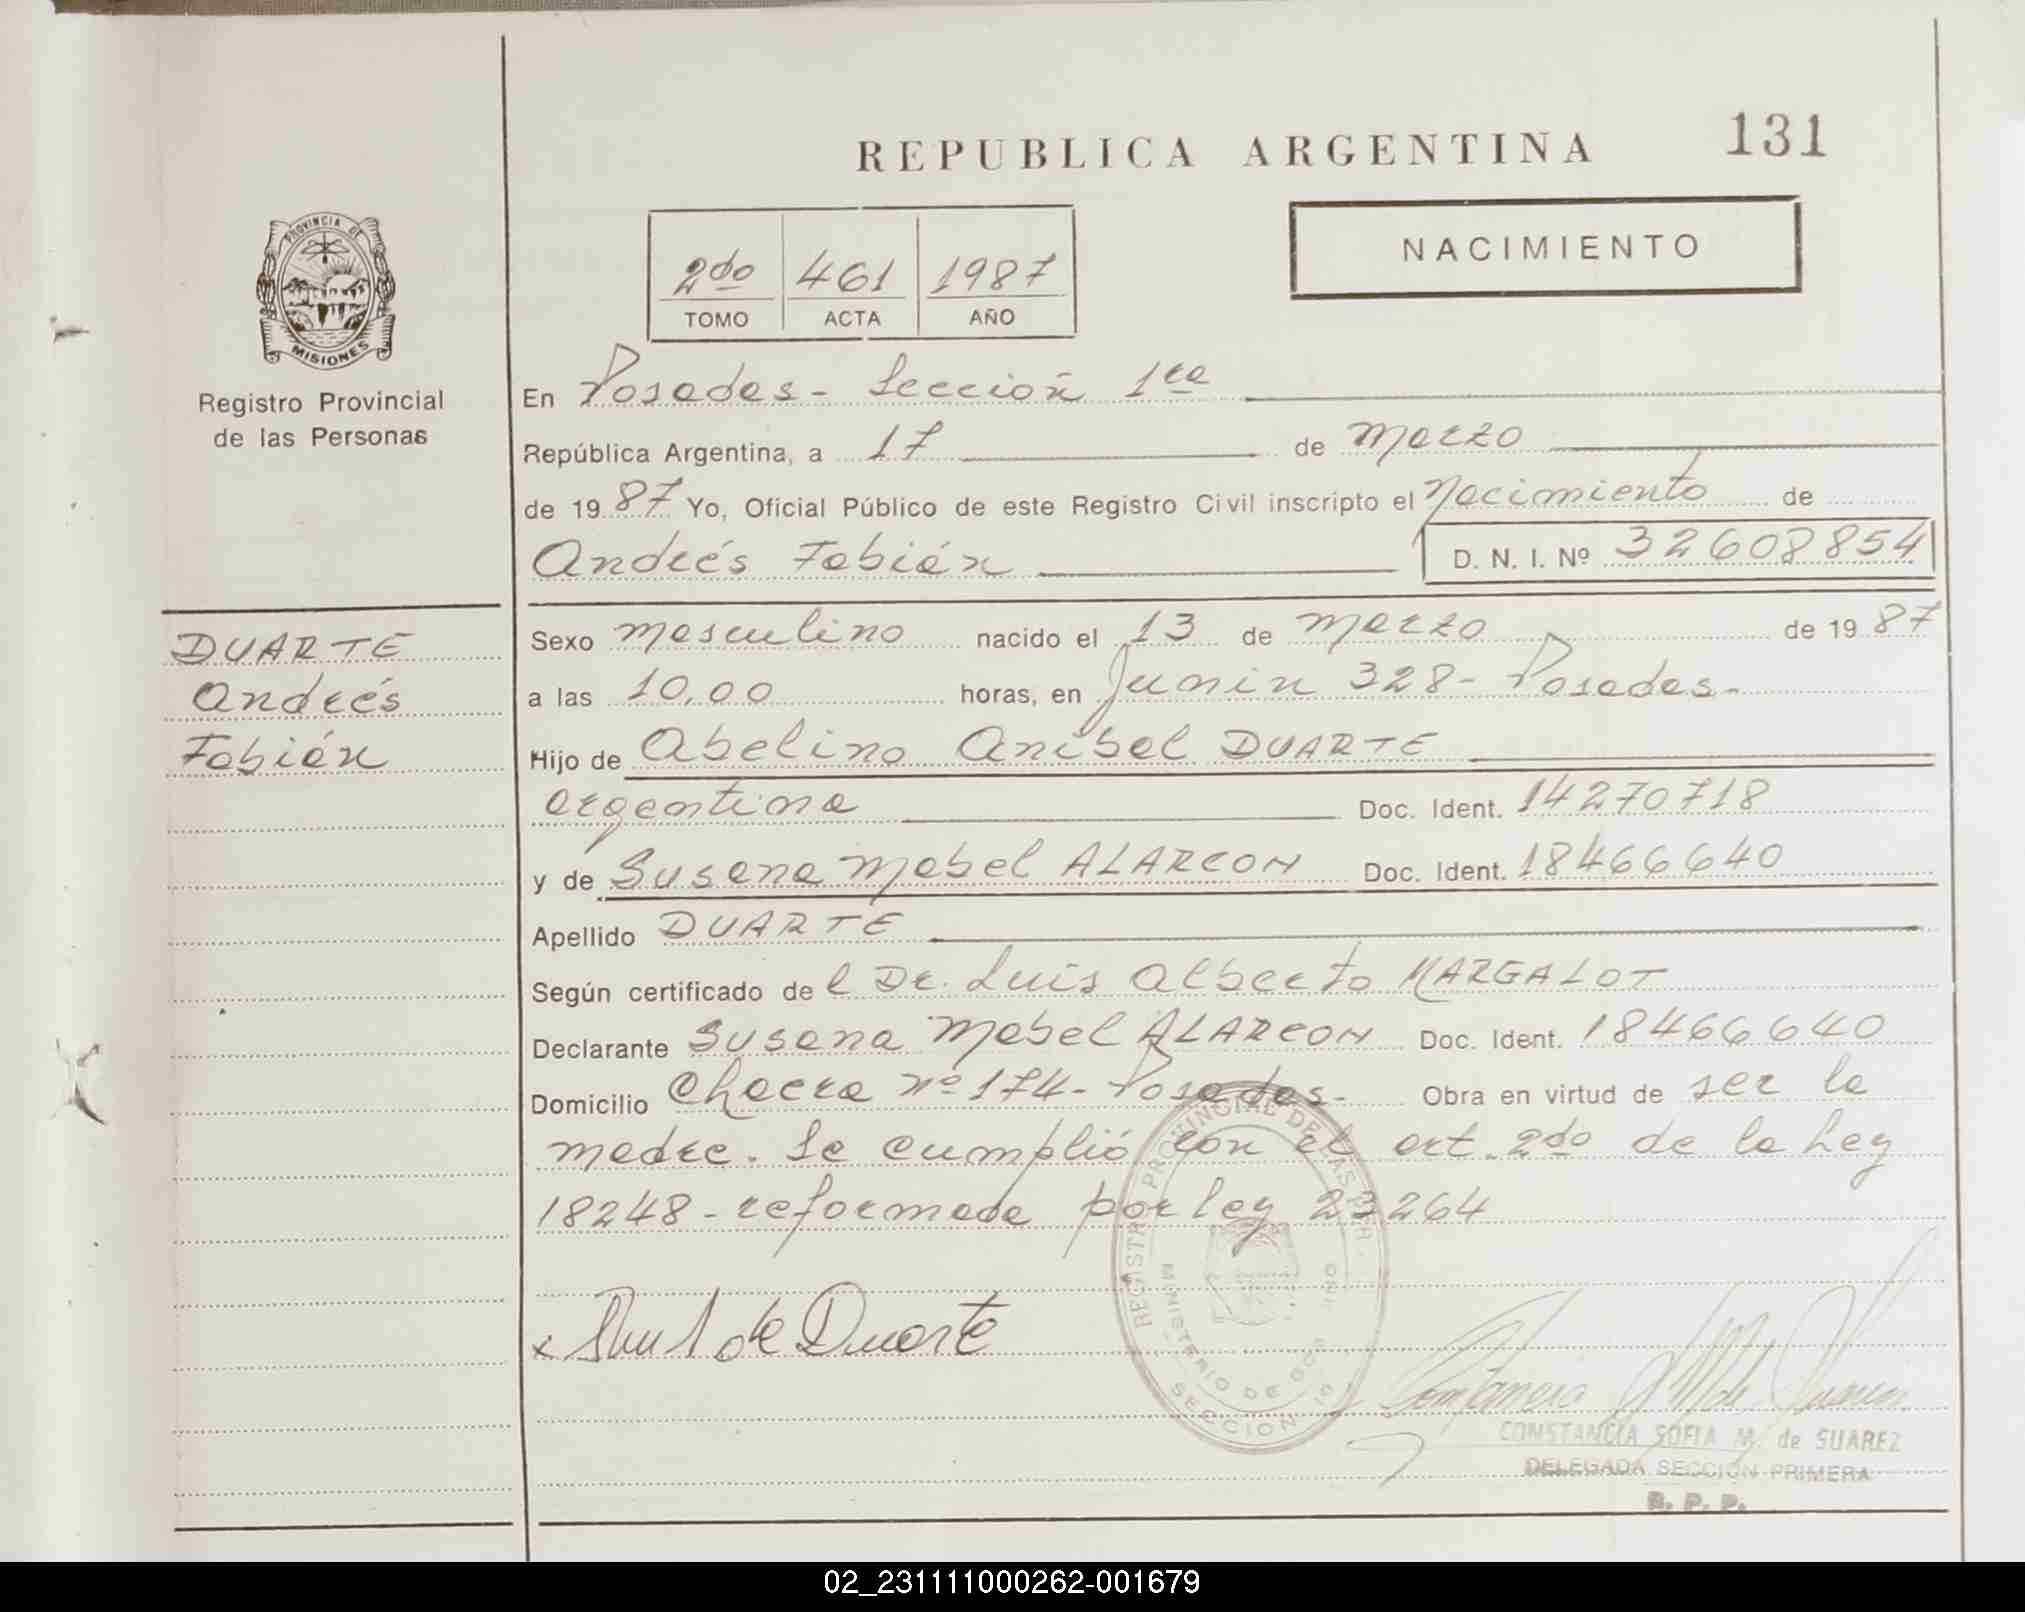 131
REPUBLICA ARGENTINA
NACIMIENTO
2do 461 1987
TOMO ACTA AÑO
PROVINCIA DE
MISIONES
Registro Provincial
de las Personas
En Posadas - Sección 1ra
República Argentina, a 17 de marzo
de 1987 Yo, Oficial Público de este Registro Civil inscripto el Nacimiento de
Andrés Fabián D. N. I. Nº 32608854
DUARTE
Andrés
Fabián
Sexo masculino nacido el 13 de marzo de 1987
a las 10,00 horas, en Junin 328 - Posadas -
Hijo de Abelino Anibal DUARTE
argentina Doc. Ident. 14270718
y de Susana Mabel ALARCON Doc. Ident. 18466640
Apellido DUARTE
Según certificado de l Dr. Luis Alberto MARGALOT
Declarante Susana Mabel ALARCON Doc. Ident. 18466640
Domicilio Chacra nº 174 - Posadas - Obra en virtud de ser la
madre. Se cumplió con el art. 2do de la Ley
18248 - reformada por ley 23264
REGISTRO PROVINCIAL DE LAS PER.
MINISTERIO DE GOB
SECCION 1a
x de Duarte
CONSTANCIA SOFIA M. de SUAREZ
DELEGADA SECCION PRIMERA
R. P. P.
02_231111000262-001679